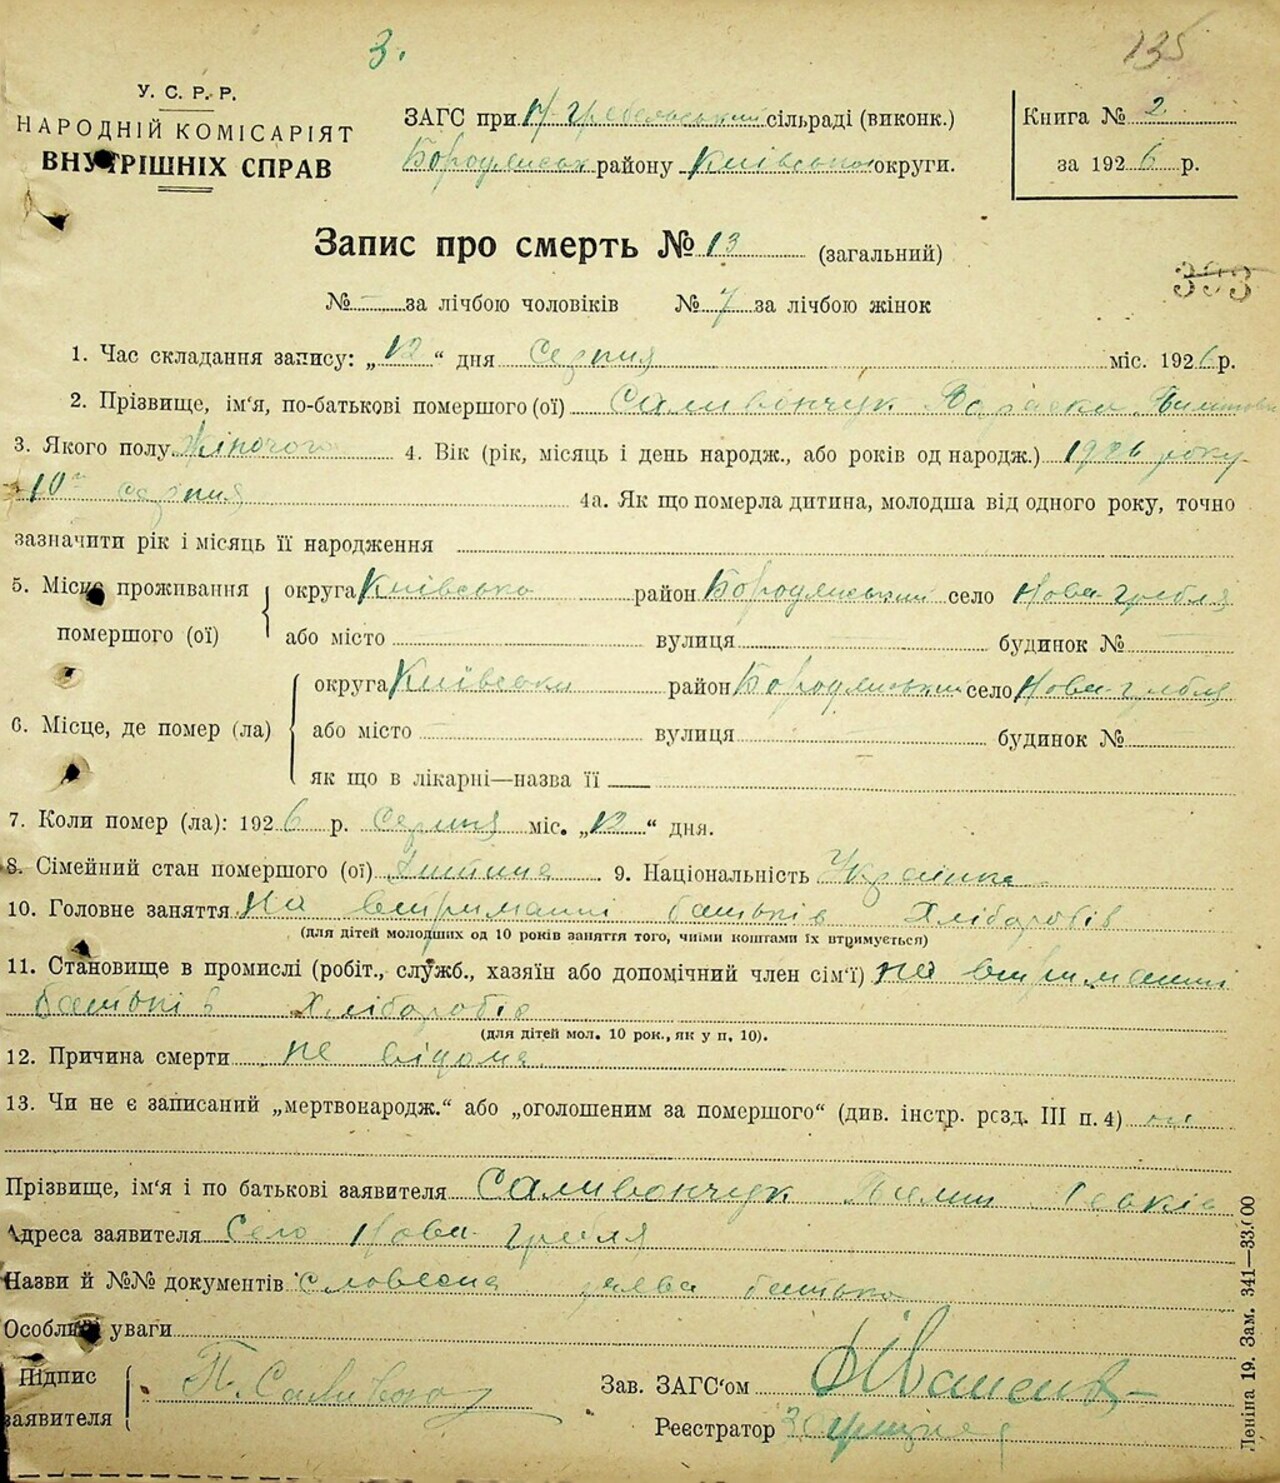 3.
135
У. С. Р. Р.
НАРОДНІЙ КОМІСАРІЯТ
ВНУТРІШНІХ СПРАВ
ЗАГС при Н-Гребельський сільраді (виконк.)
Бородянськ району Київсько округи.
Книга № 2
за 1926 р.
Запис про смерть № 13 (загальний)
393
№ — за лічбою чоловіків № 7 за лічбою жінок
1. Час складання запису: „12“ дня Серпня міс. 1926 р.
2. Прізвище, ім‘я, по-батькові помершого (ої) Саливончук
3. Якого полу Жіночого 4. Вік (рік, місяць і день народж., або років од народж.) 1926 року
10го серпня 4а. Як що померла дитина, молодша від одного року, точно
зазначити рік і місяць її народження
5. Місце проживання помершого (ої) округа Київсько район Бородянський село Нова-гребля
або місто вулиця будинок №
6. Місце, де помер (ла) округа Київська район Бородянський село Нова-гребля
або місто вулиця будинок №
як що в лікарні—назва її
7. Коли помер (ла): 1926 р. Серпня міс. „12“ дня.
8. Сімейний стан помершого (ої) Дитина 9. Національність Українка
10. Головне заняття На втриманні батьків Хліборобів
(для дітей молодших од 10 років заняття того, чиїми коштами їх втримується)
11. Становище в промислі (робіт., служб., хазяїн або допомічний член сім‘ї) на втриманні
батьків Хліборобів
(для дітей мол. 10 рок., як у п. 10).
12. Причина смерти не відома
13. Чи не є записаний „мертвонародж.“ або „оголошеним за помершого“ (див. інстр. розд. III п. 4) ні
Прізвище, ім‘я і по батькові заявителя Саливончук Пилип
Адреса заявителя Село Нова-гребля
Назви й №№ документів Словесна заява батька
Особливі уваги
Підпис заявителя П. Саливон
Зав. ЗАГС‘ом
Реєстратор
Леніна 19. Зам. 341—33.000